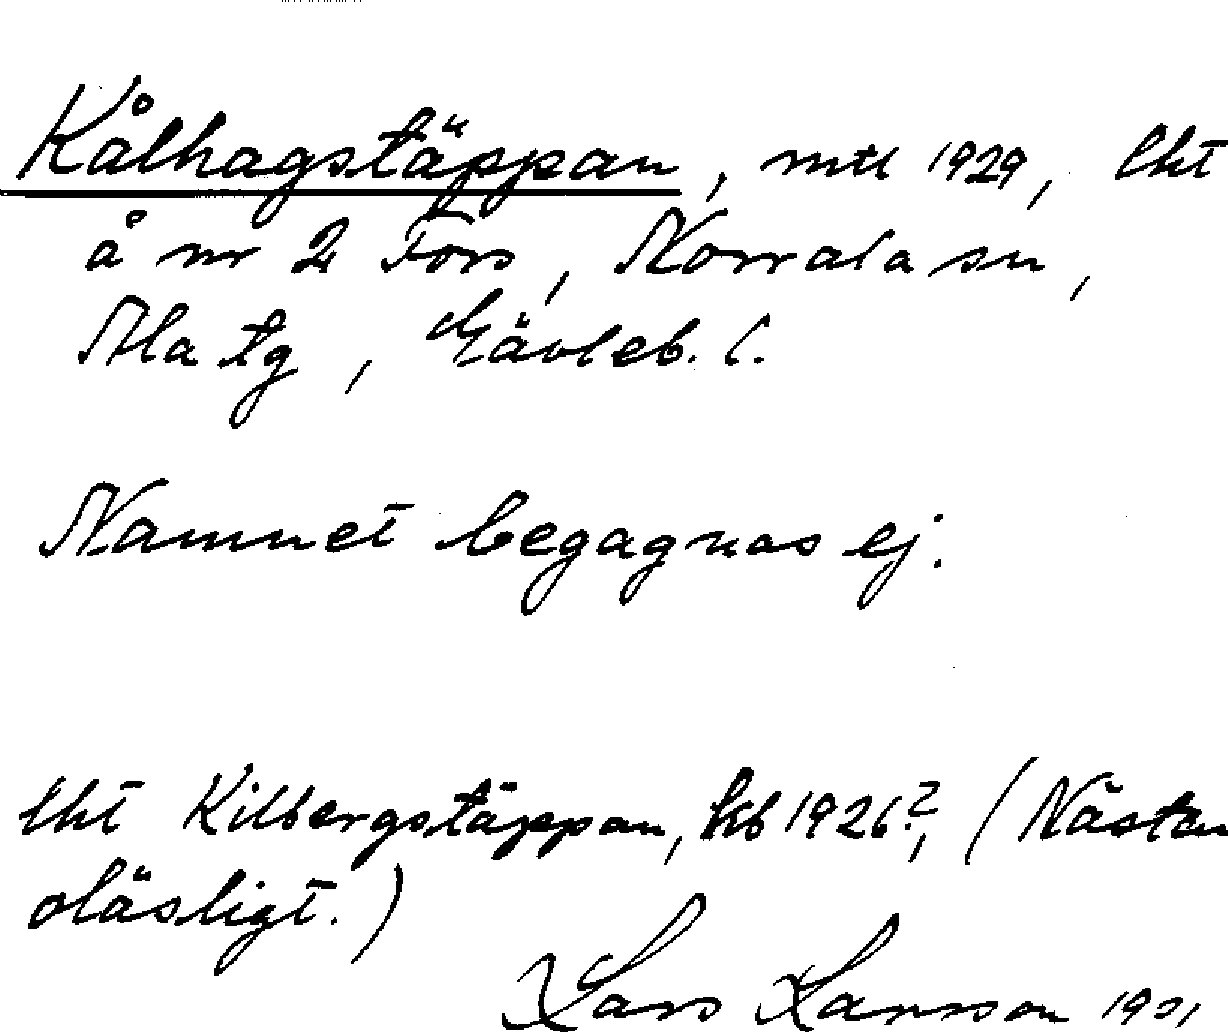 Kålhagstäppan, mtl 1929, lht
å nr 2 Fors, Norrala sn,
Ala tg, Gävleb. l.
Namnet begagnas ej.
lht Kilbergstäppan, kb 1926?, (Nästan
oläsligt.)
Lars Larsson